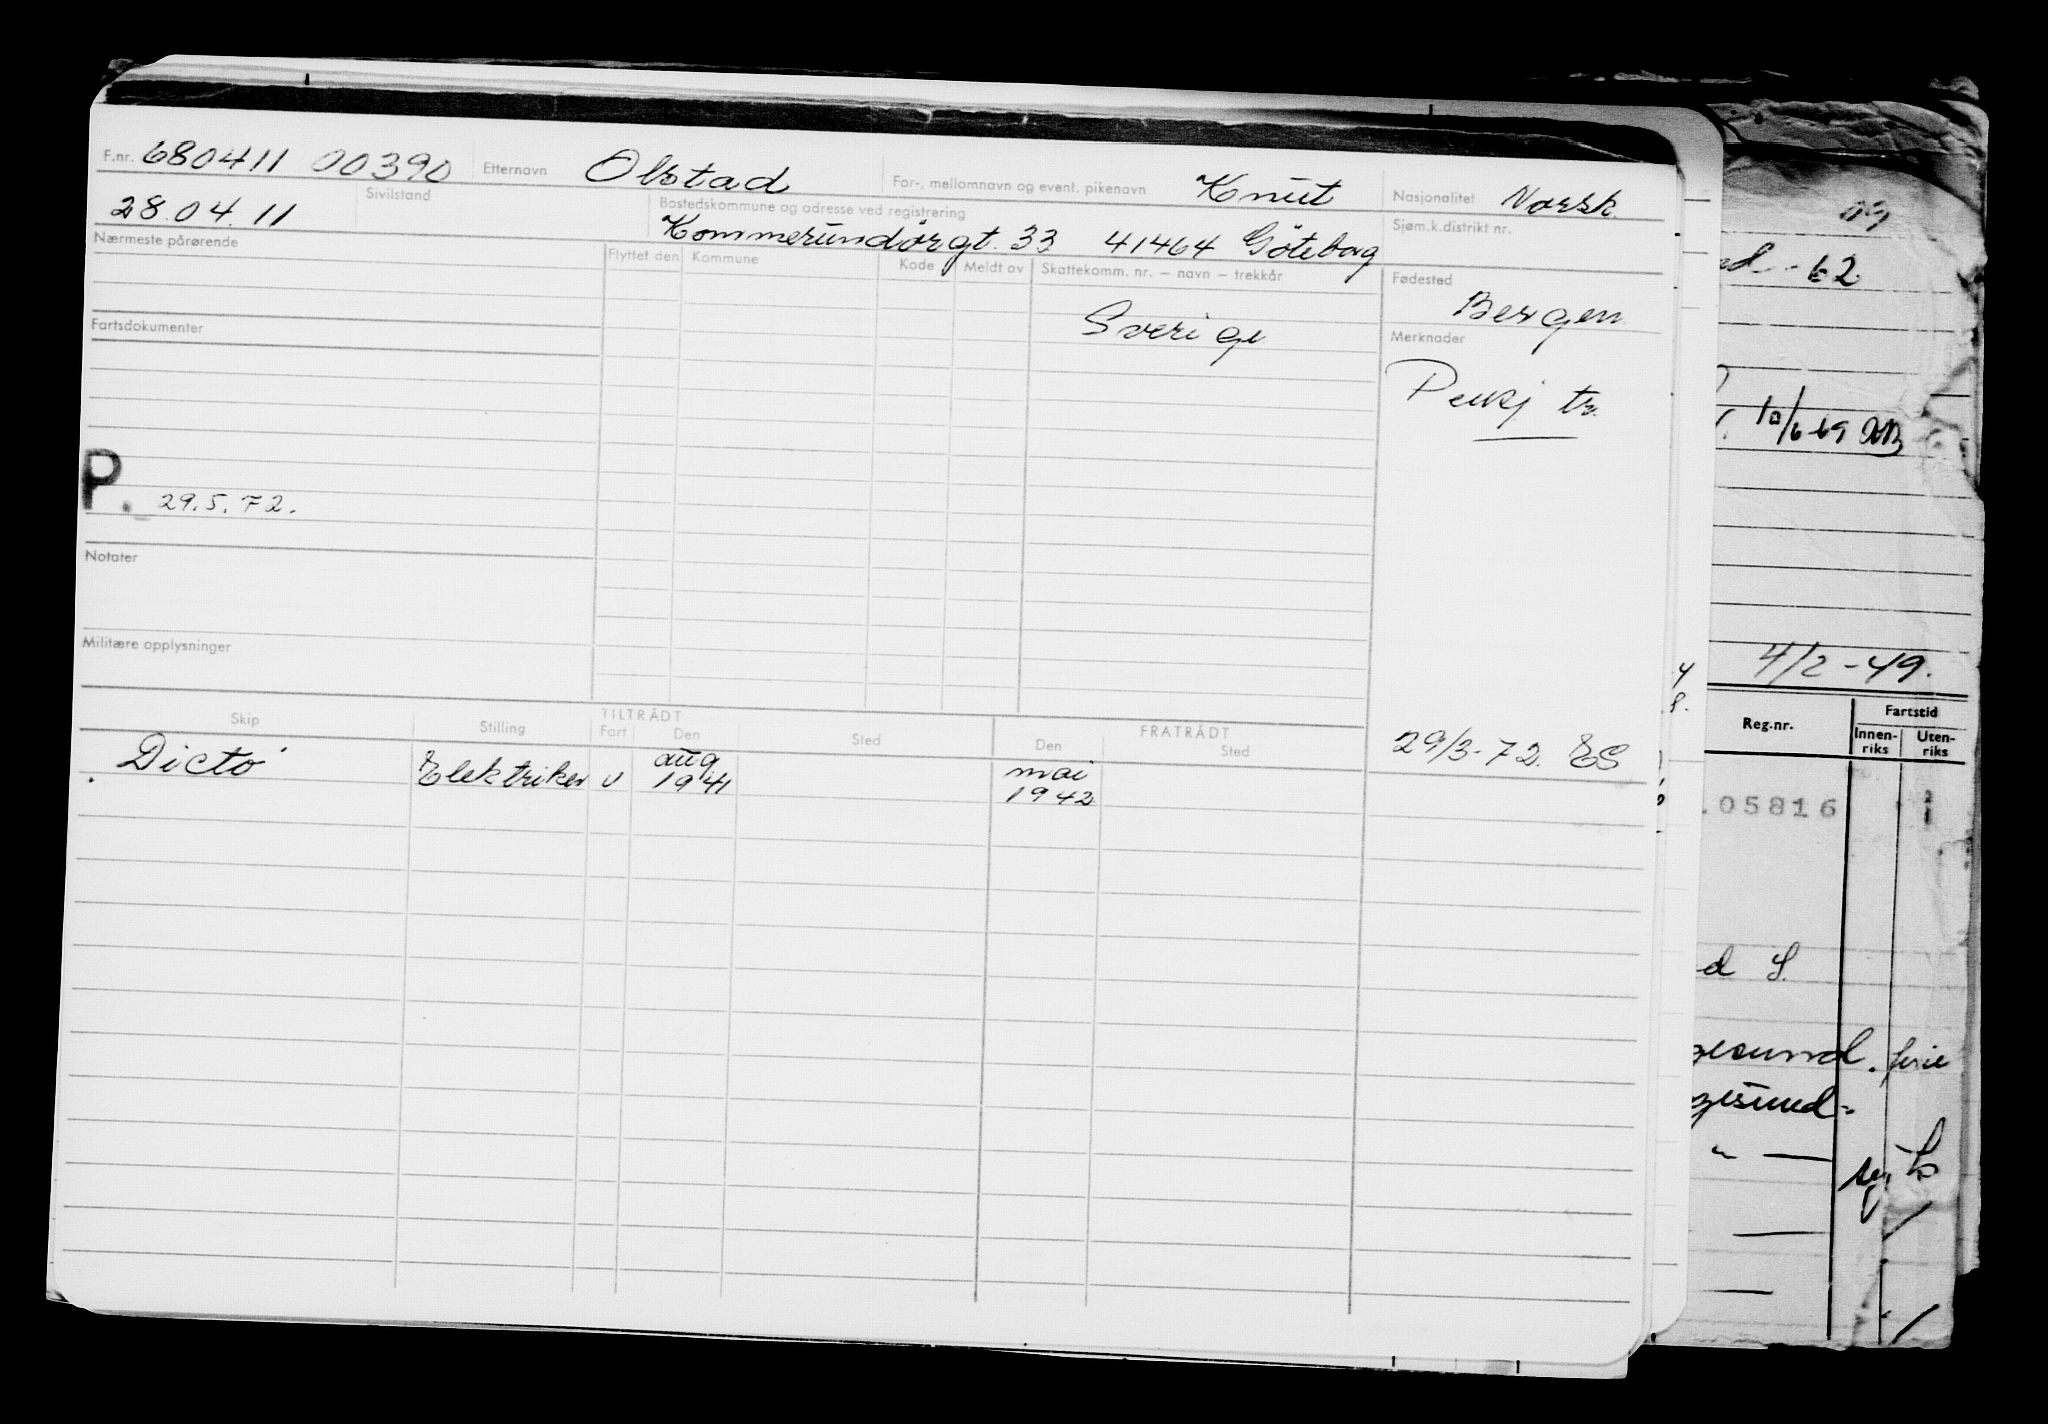 F.nr. 680411 00390 Etternavn Olstad For-, mellomnavn og event. pikenavn Knut Nasjonalitet Norsk
28.04.11 Sivilstand Bostedskommune og adresse ved registrering Sjøm.k.distrikt nr.
Kommerundörgt. 33 41464 Göteborg
Nærmeste pårørende Flyttet den Kommune Kode Meldt av Skattekomm. nr. – navn – trekkår Fødested
Bergen
Sverige
Fartsdokumenter Merknader
tr.
P. 29.5.72.
Notater
Militære opplysninger
Skip Stilling TILTRÅDT Fart Den Sted FRATRÅDT Den Sted
29/3-72. ES
Dicto Elektriker U aug 1941 mai 1942
09
- 62
10/6 69
4/2-49.
Reg.nr. Fartstid
Innen-riks Uten-riks
.05816
d S.
gesund. ferie
gesund-